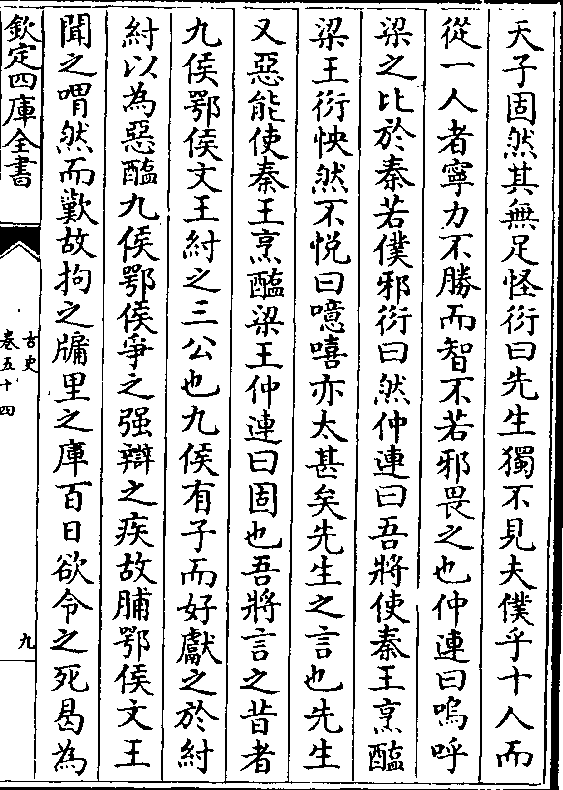 天子固然其無足怪衍曰先生獨不見夫僕乎十人而
從一人者寧力不勝而智不若邪畏之也仲連曰嗚呼
梁之比於秦若僕邪衍曰然仲連曰吾將使秦王烹醢
梁王衍怏然不悦曰噫嘻亦太甚矣先生之言也先生
又惡能使秦王烹醢梁王仲連曰固也吾將言之昔者
九侯鄂侯文王紂之三公也九侯有子而好獻之於紂
紂以為惡醢九侯鄂侯爭之强辯之疾故脯鄂侯文王
聞之喟然而歎故拘之牖里之庫百日欲令之死曷為
欽定四庫全書
古史
卷五十四
九